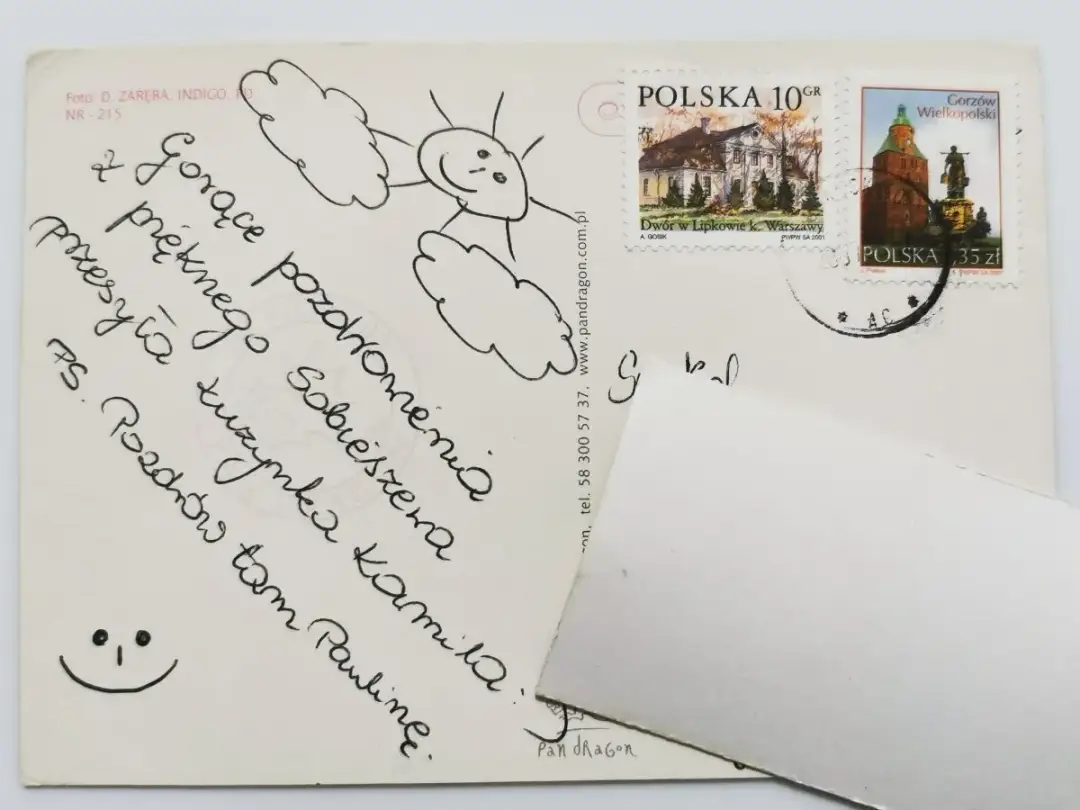 Foto: D. ZARĘBA, INDIGO,
NR - 215
POLSKA 10 GR
Dwór w Lipkowie k. Warszawy
A. GOSIK PWPW SA 2001
Gorzów
Wielkopolski
POLSKA 1,35 zł
Gorące pozdrowienia
z pięknego Sobieszewa
przesyła kuzynka Kamila.
PS. Pozdrów tam Paulinę.
tel. 58 300 57 37, www.pandragon.com.pl
Pan dRaGon